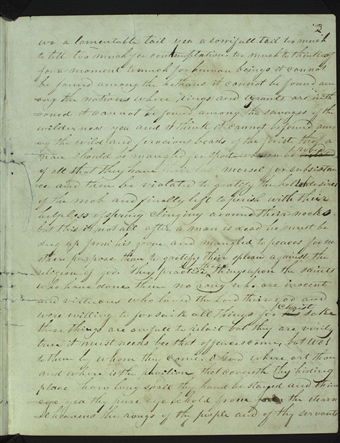 2
a lamentable tail yea a sorrifull tail too much
to tell too much for contemplation too much to think of
for a moment to much for human beings it cannot
be found among the hethans it cannot be found am
ong the nations where Kings and tyrants are inth
roned it cannot be found among the savages of the
wilderness yea and I think it cannot be found am
ong the wild and ferocious beasts of the forist that a
man should be mangled for sport women be robed
of all that they have their last morsel for subsistan
ce and then be violated to gratify the hellish desires
of the mob and finally left to perish with their
helpless ofspring clinging around their necks
but this is not all after a man is dead he must be
dug up from his grave and mangled to peaces for no
other purpose than to gratify their splean against the
religeon of god They practise these things upon the saints
who have done them no wrong who are inocent
and virtuous who loved the Lord their god and
were willing to forsaik all things for Christ sake
these things are awfull to relait but they are verily
true it must needs bee that offences come, but WO
to them by whom they come O God where art thou
and where is the pavilion that covereth thy hiding
place how long shall thy hand be stayed and thine
eye yea thy pure eye behold from the etearnal
heavens the rongs of thy people and of thy servants